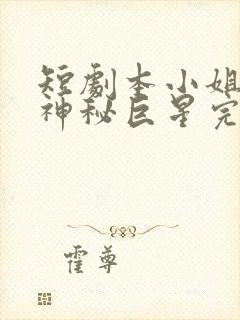 短劇本小姐
神秘巨星完
霍尊